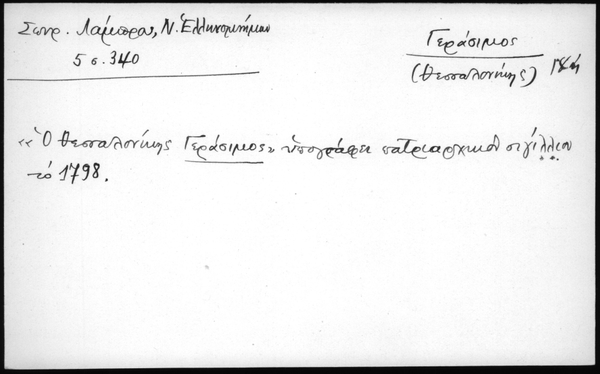 Σπυρ. Λάμπρου, Ν. Ἑλληνομνήμων
5 σ. 340
Γεράσιμος
(Θεσσαλονίκης)
«Ὁ Θεσσαλονίκης Γεράσιμος» ὑπογράφει πατριαρχικὸν σιγίλλιον
τὸ 1798.